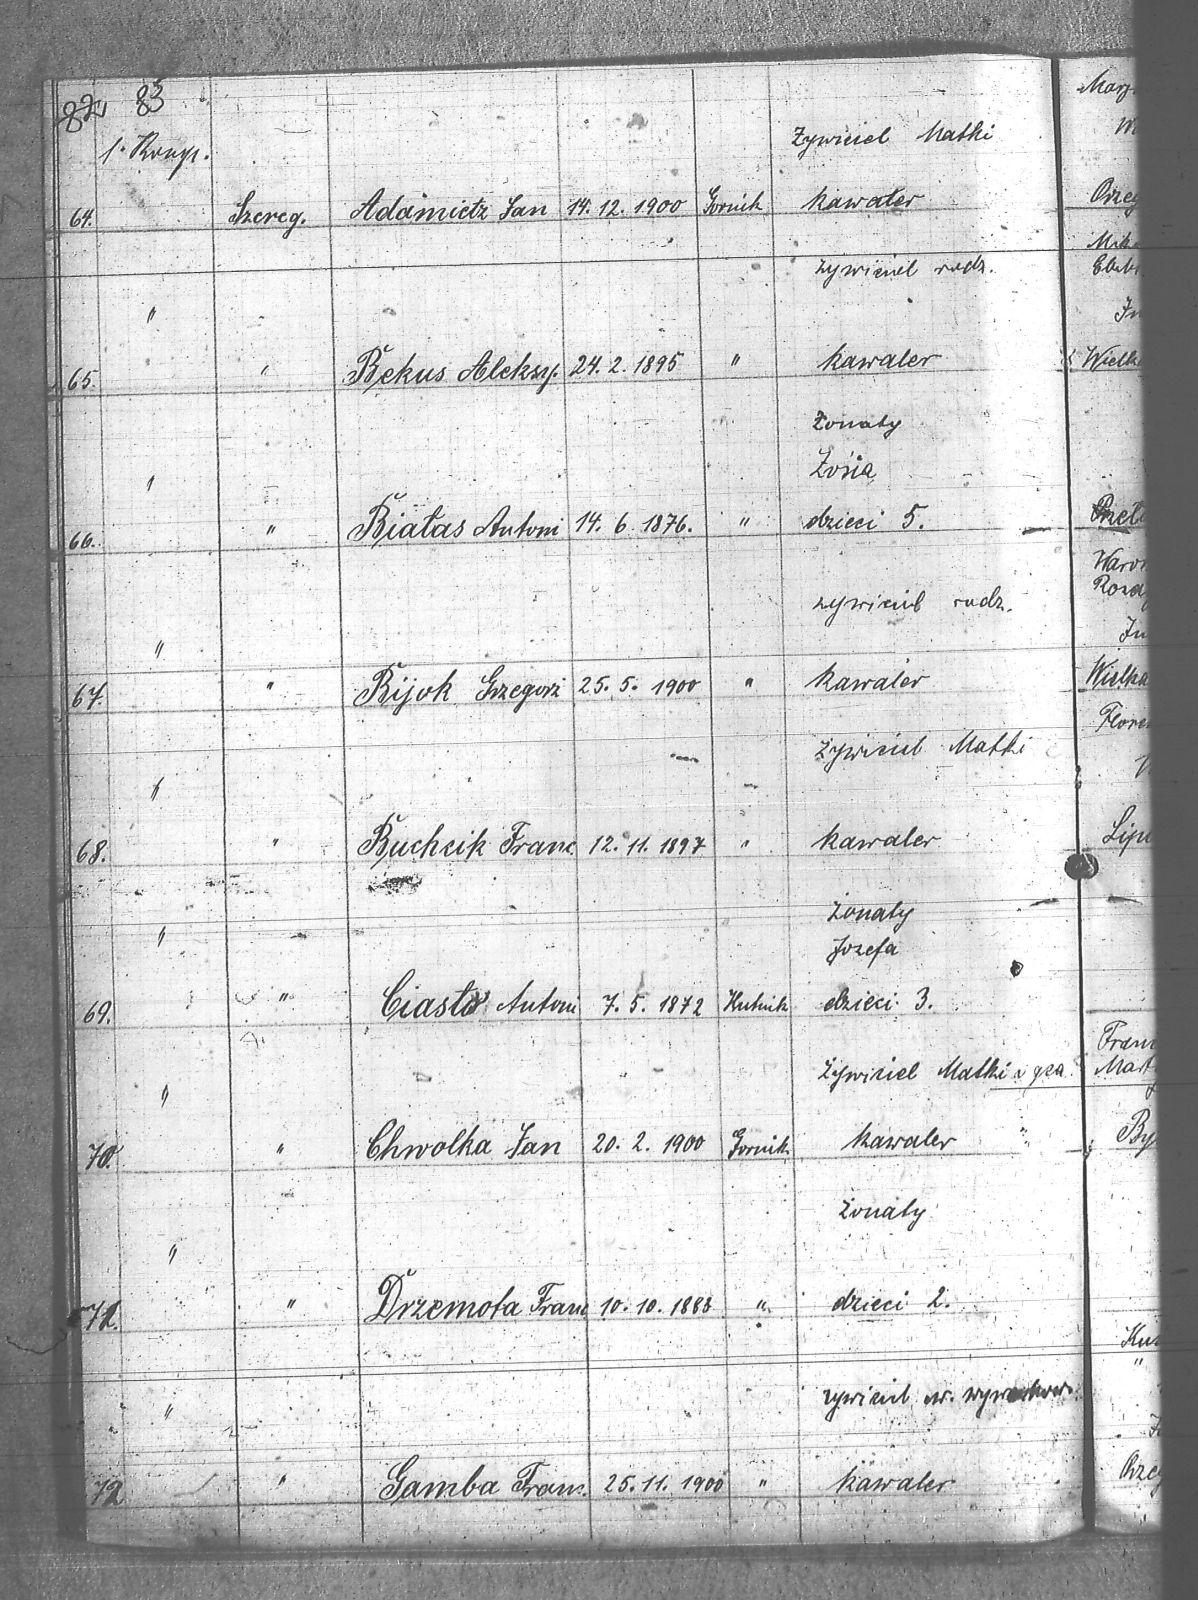 82 83
1. Komp. Żywiciel Matki
64. Szereg. Adamietz Jan 14. 12. 1900 Gornik kawaler
żywiciel rodz.
"
65. " Bekus Aleksy. 24. 2. 1895 " kawaler
Żonaty
" Zośia
66. " Białas Antoni 14. 6. 1876. " dzieci 5.
żywiciel rodz.
"
67. " Bijok Grzegorz 25. 5. 1900 " kawaler
żywiciel Matki
"
68. " Buchcik Franc. 12. 11. 1897 " kawaler
żonaty
" Jozefa
69. " Ciasto Antoni 7. 5. 1872 Hutnik dzieci 3.
żywiciel Matki i
"
70. " Chwolka Jan 20. 2. 1900 Gornik kawaler
żonaty
"
71. " Drzemota Franc 10. 10. 1888 " dzieci 2.
żywiciel
"
72 " Gamba Franc. 25. 11. 1900 " kawaler